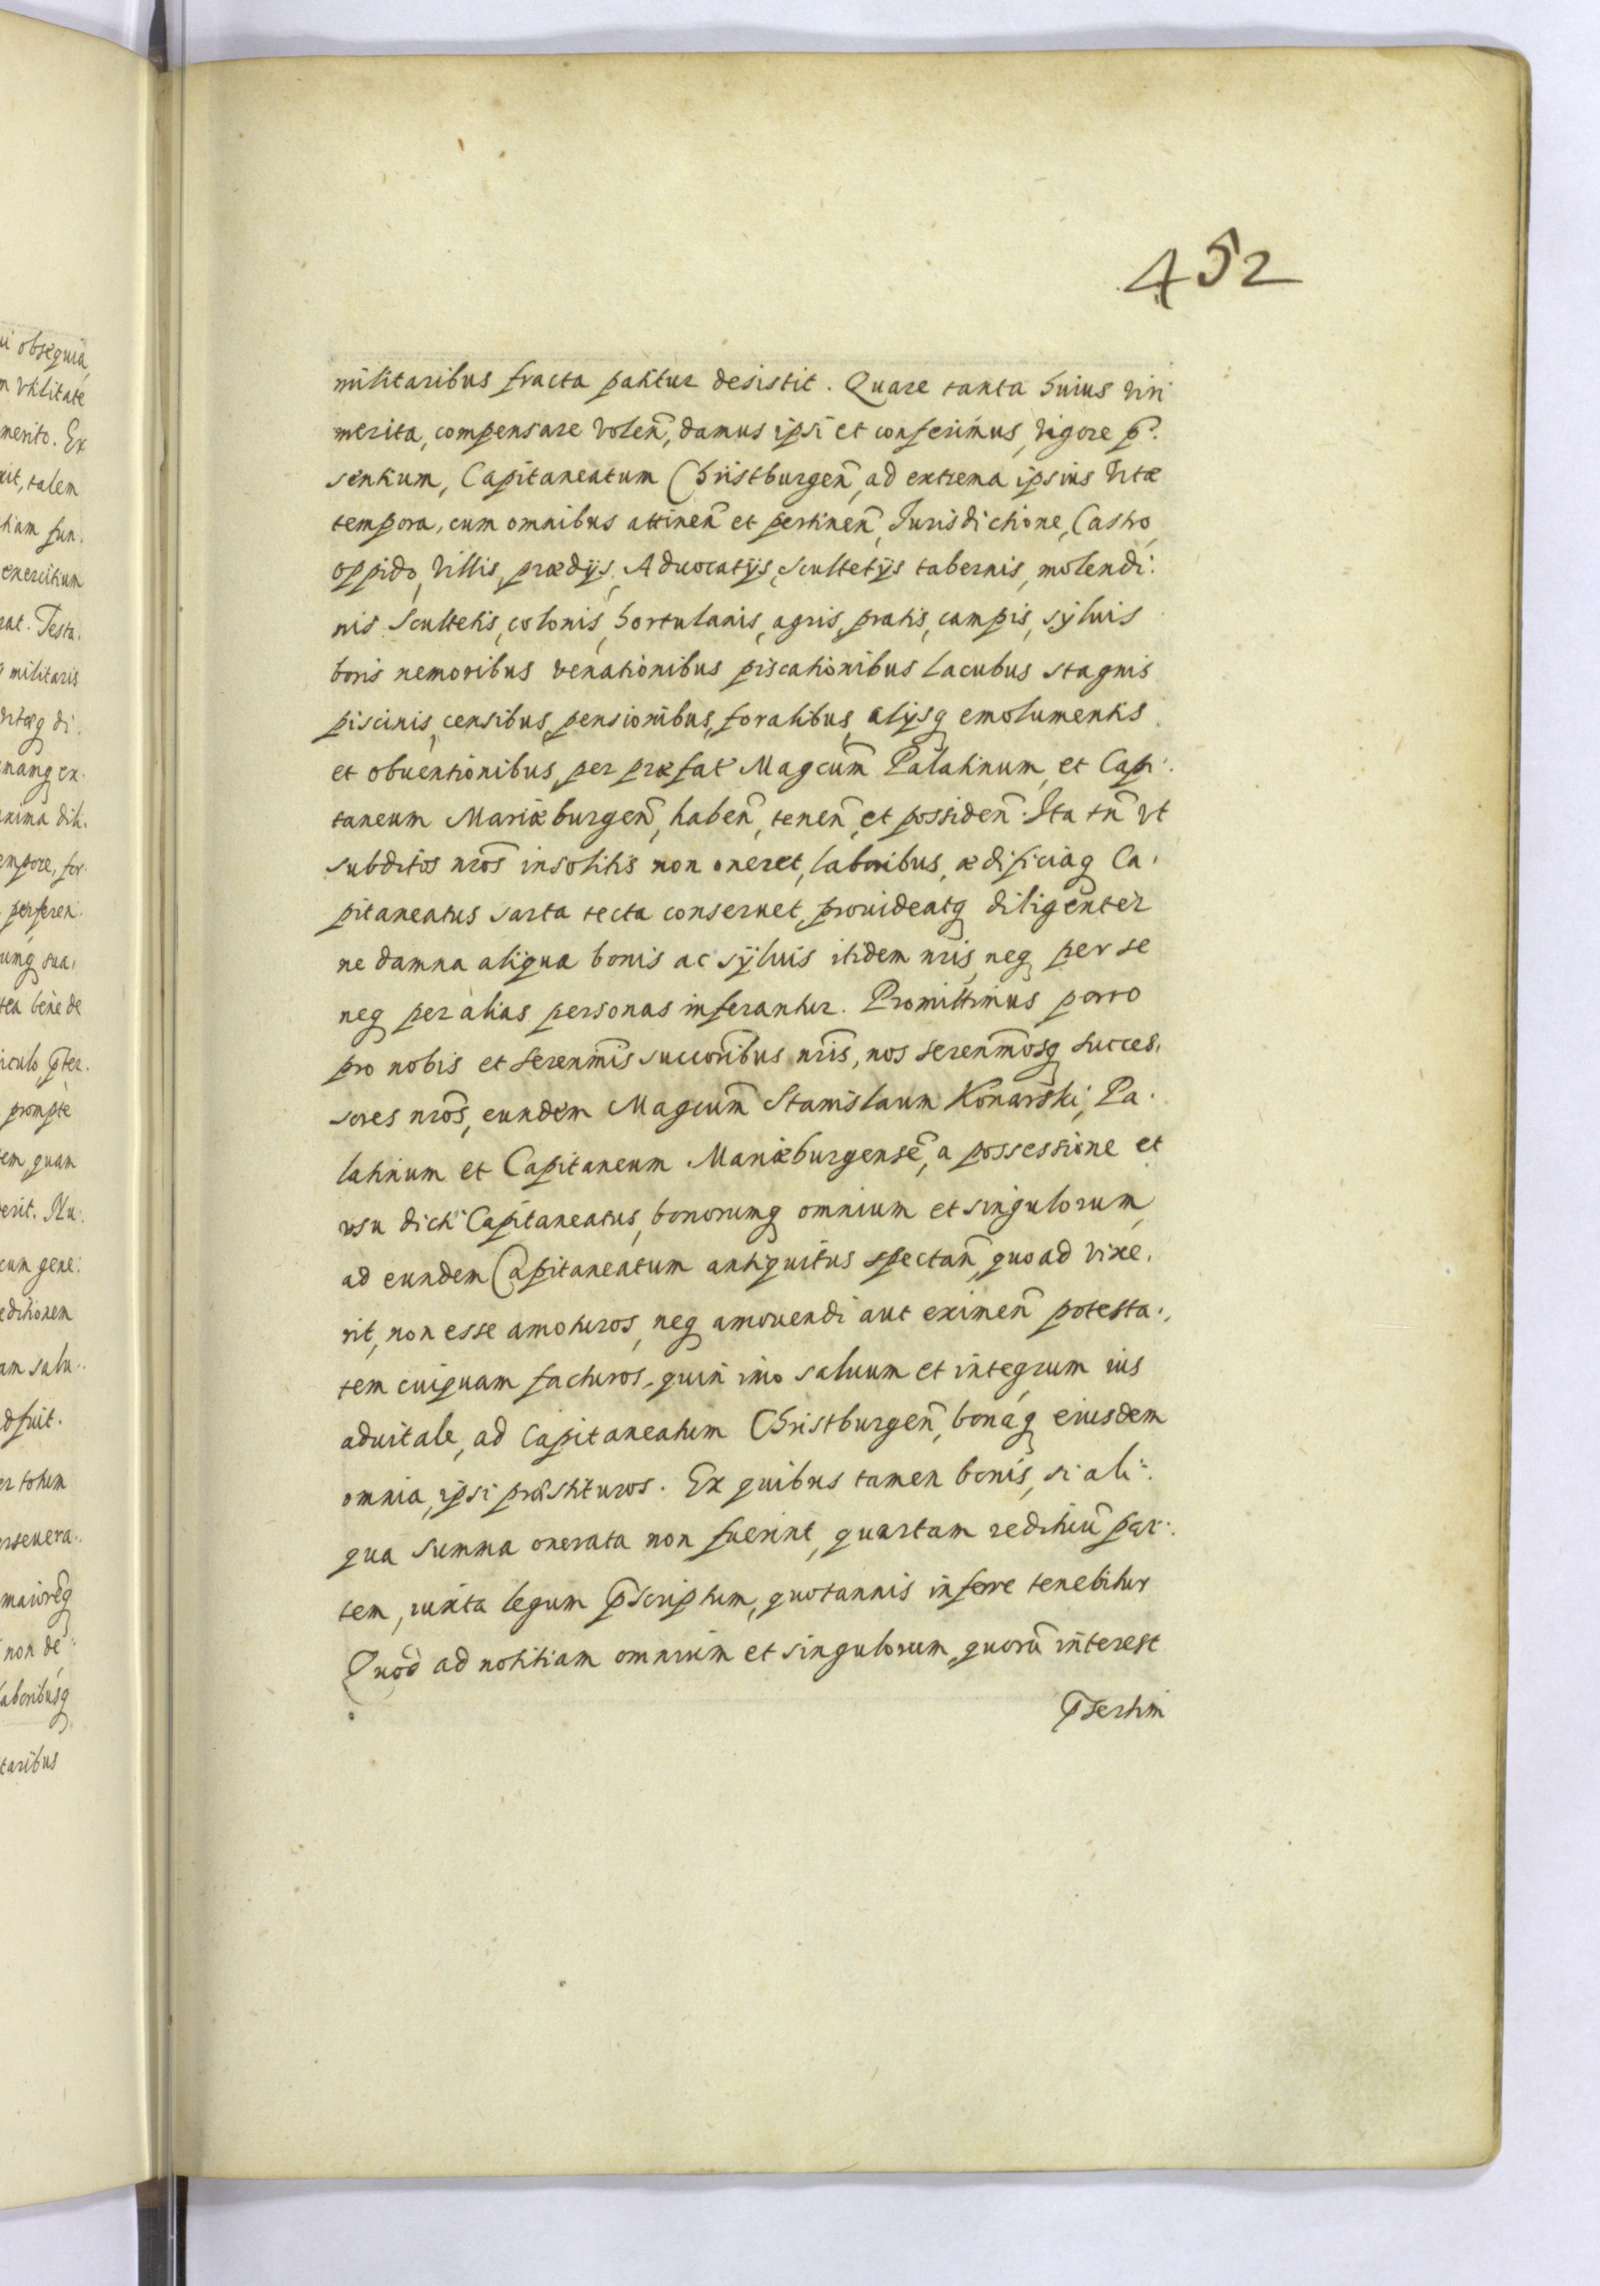 452
militaribus fracta patitur desistit. Quare tanta huius viri
merita, compensare volen̄, damus ipsi et conferimus, vigore p̄:
sentium, Capitaneatum Christburgen̄, ad extrema ipsius vitæ
tempora, cum omnibus attinen̄ et pertinen̄, Jurisdictione, Castro,
oppido, villis, prædijs, Advocatijs, Scultetijs tabernis, molendi:
nis Scultetis, colonis, hortulanis, agris, pratis, campis, sylvis
boris nemoribus venationibus piscationibus lacubus stagnis
piscinis, censibus, pensionibus, foralibus, alijsq emolumentis
et obventionibus, per præfat Magcūm Palatinum, et Capi:
taneum Mariæburgen̄, haben̄, tenen̄, et possiden̄. Ita tn̄ vt
subditos nr̄os insolitis non oneret, laboribus, ædificiaq Ca,
pitaneatus sarta tecta conseruet, prouideatq diligenter
ne damna aliqua bonis ac sylvis itidem nr̄is, neq per se
neq per alias personas inferantur. Promittimus porro
pro nobis et serenm̄is succorībus nr̄is, nos serenm̄osq succes,
sores nr̄os, eundem Magcūm Stanislaum Konarski, Pa,
latinum et Capitaneum Mariæburgensē, a possessione et
vsu dicti Capitaneatus, bonorumq omnium et singulorum,
ad eundem Capitaneatum antiquitus spectan̄, quoad vixe,
rit, non esse amoturos, neq amouendi aut eximen̄ potesta,
tem cuiquam facturos, quin imo saluum et integrum ius
aduitale, ad Capitaneatum Christburgen̄, bonaq eiusdem
omnia, ipsi præstituros. Ex quibus tamen bonis, si ali:
qua summa onerata non fuerint, quartam reddituū par:
tem, iuxta legum p̄scriptum, quotannis inferre tenebitur
Quod ad notitiam omnium et singulorum, quorū interest
p̄sertim